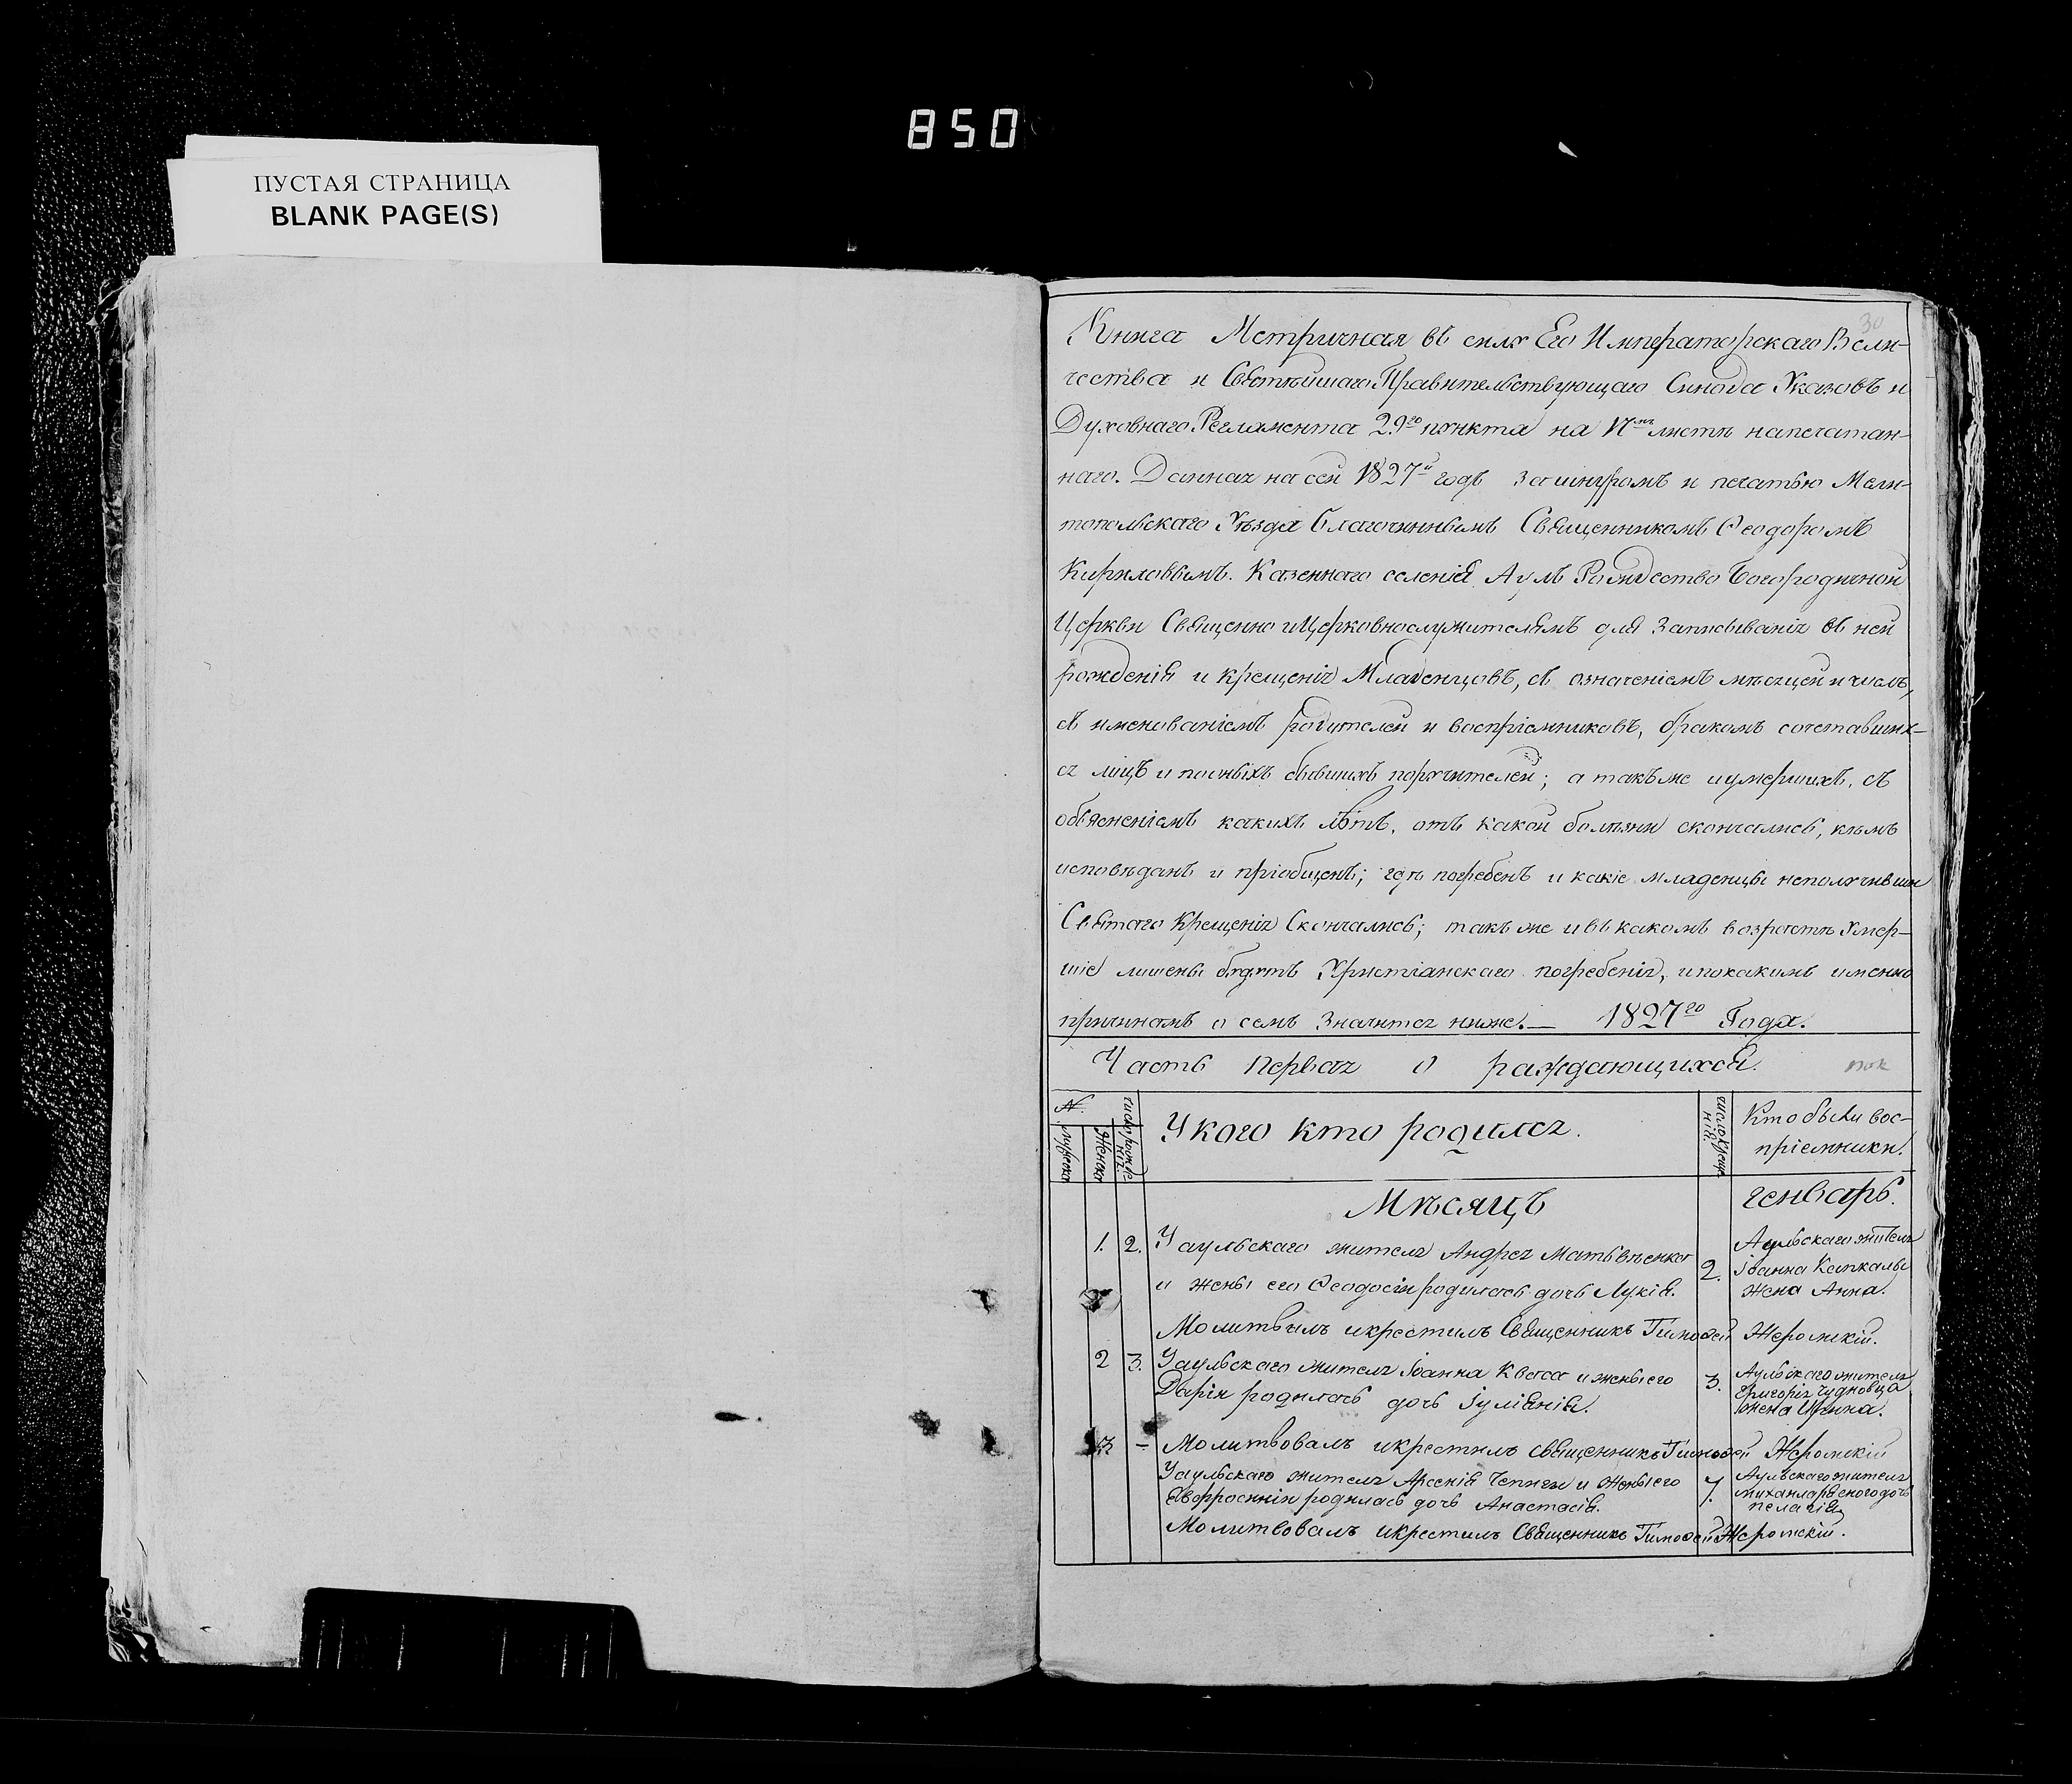 850
ПУСТАЯ СТРАНИЦА
BLANK PAGE(S)
30
Книга Метричная въ силу Его Императорскаго Вели-
чества и Святѣйшаго Правительствующаго Синода Указовъ и
Духовнаго Регламента 29го пункта на 17мъ листѣ напечатан-
наго. Данная на сей 1827й годъ за шнуромъ и печатью Мели-
топольскаго Уѣзда Благочиннымъ Священникомъ Ѳеодоромъ
Кириловымъ. Казеннаго селенія Аулъ Рождество Богородичной
Церкви Священно и Церковнослужителямъ для Записыванія въ ней
рожденія и крещенія Младенцовъ, съ означеніемъ мѣсяцей и числъ,
съ именованіемъ родителей и воспріемниковъ, бракомъ сочетавших-
ся лицъ и по нихъ бывшихъ поручителей; а такъ же и умершихъ, съ
объясненіемъ какихъ лѣтъ, отъ какой болѣзни скончались, кѣмъ
исповѣданъ и пріобщенъ; гдѣ погребенъ и какіе младенцы неполучивши
Святаго Крещенія Скончались; такъ же и въ какомъ возрастѣ Умер-
шіе лишены будутъ Христіанскаго погребенія, и по какимъ именно
причинамъ о семъ Значится ниже.— 1827го Года.
Часть Первая о раждающихся.
№.
мужеска
Женска
число рожде-
нія.
У кого кто родился.
число креще-
нія.
Кто были вос-
пріемники.
Мѣсяцъ генварь.
1. 2. У аульскаго жителя Андрея Матвѣенка
и жены его Ѳеодосіи родилась дочь Лукія.
2. Аульскаго жителя
Іоанна Капкалы
жена Анна.
Молитвилъ и крестилъ Священникъ Тимоѳей Жеромскій.
2 3. У аульскаго жителя Іоанна Кваса и жены его
Даріи родилась дочь Іуліянія.
3. Аульскаго жителя
Григорія Чудновца
жена Ирина.
3 – Молитвовалъ и крестилъ священникъ Тимоѳей Жеромскій
У аульскаго жителя Арсенія Чепиги и жены его
Евфросиніи родилась дочь Анастасія.
7. Аульскаго жителя
дочь
пелагія
Молитвовалъ и крестилъ Священникъ Тимоѳей Жеромскій.